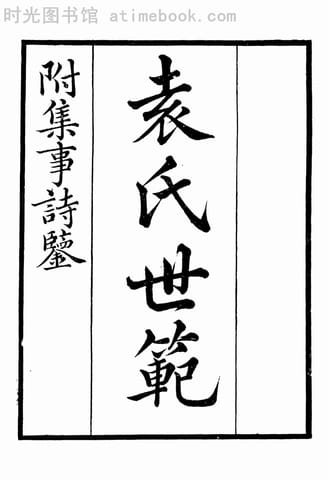 时光图书馆 atimebook.com
袁氏世範
附集事詩鑒